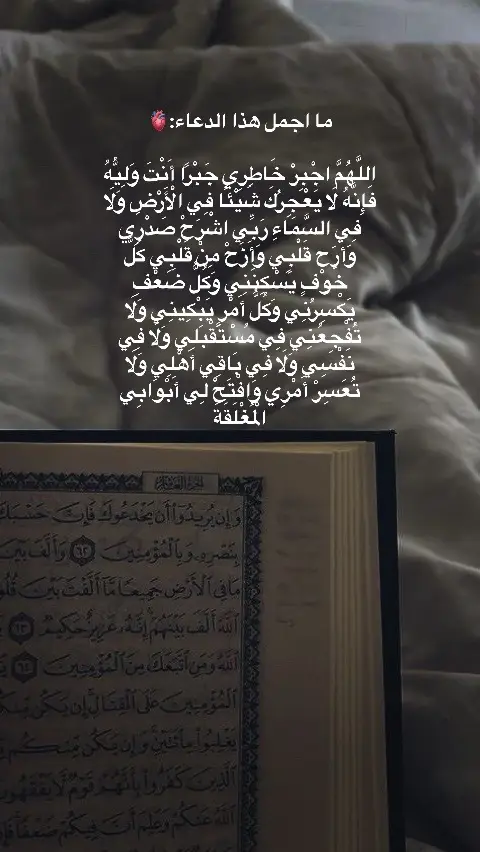 ما اجمل هذا الدعاء:🫀
اللَّهُمَّ اجْبِرْ خَاطِرِي جَبْرًا أَنْتَ وَلِيُّهُ
فَإِنَّهُ لَا يَعْجِزُكَ شَيْئًا فِي الْأَرْضِ وَلَا
فِي السَّمَاءِ رَبِّي اشْرَحْ صَدْرِي
وَأَرَحِ قَلْبِي وَأَزِحْ مِنْ قَلْبِي كُلَّ
خَوْفٍ يَسْكِنُنِي وَكُلَّ ضَعْفٍ
يَكْسِرُنِي وَكُلَّ أَمْرٍ يَبْكِينِي وَلَا
تُفْجِعْنِي فِي مُسْتَقْبَلِي وَلَا فِي
نَفْسِي وَلَا فِي بَاقِي أَهْلِي وَلَا
تُعَسِرْ أَمْرِي وَافْتَحْ لِي أَبْوَابِي
الْمُغْلَقَةَ
وَإِن يُرِيدُوٓا۟ أَن يَخْدَعُوكَ فَإِنَّ حَسْبَكَ
بِنَصْرِهِۦ وَبِٱلْمُؤْمِنِينَ ٦٢ وَأَلَّفَ بَيْنَ
مَا فِى ٱلْأَرْضِ جَمِيعًا مَّآ أَلَّفْتَ بَيْنَ
ٱللَّهَ أَلَّفَ بَيْنَهُمْ إِنَّهُۥ عَزِيزٌ حَكِيمٌ ٦٣
ٱللَّهُ وَمَنِ ٱتَّبَعَكَ مِنَ ٱلْمُؤْمِنِينَ ٦٤
ٱلْمُؤْمِنِينَ عَلَى ٱلْقِتَالِ إِن يَكُن
يَغْلِبُوا۟ مِا۟ئَتَيْنِ وَإِن يَكُن مِّنكُم
ٱلَّذِينَ كَفَرُوا۟ بِأَنَّهُمْ قَوْمٌ لَّا يَفْقَهُونَ
ٱللَّهُ عَنكُمْ وَعَلِمَ أَنَّ فِيكُمْ ضَعْفًا